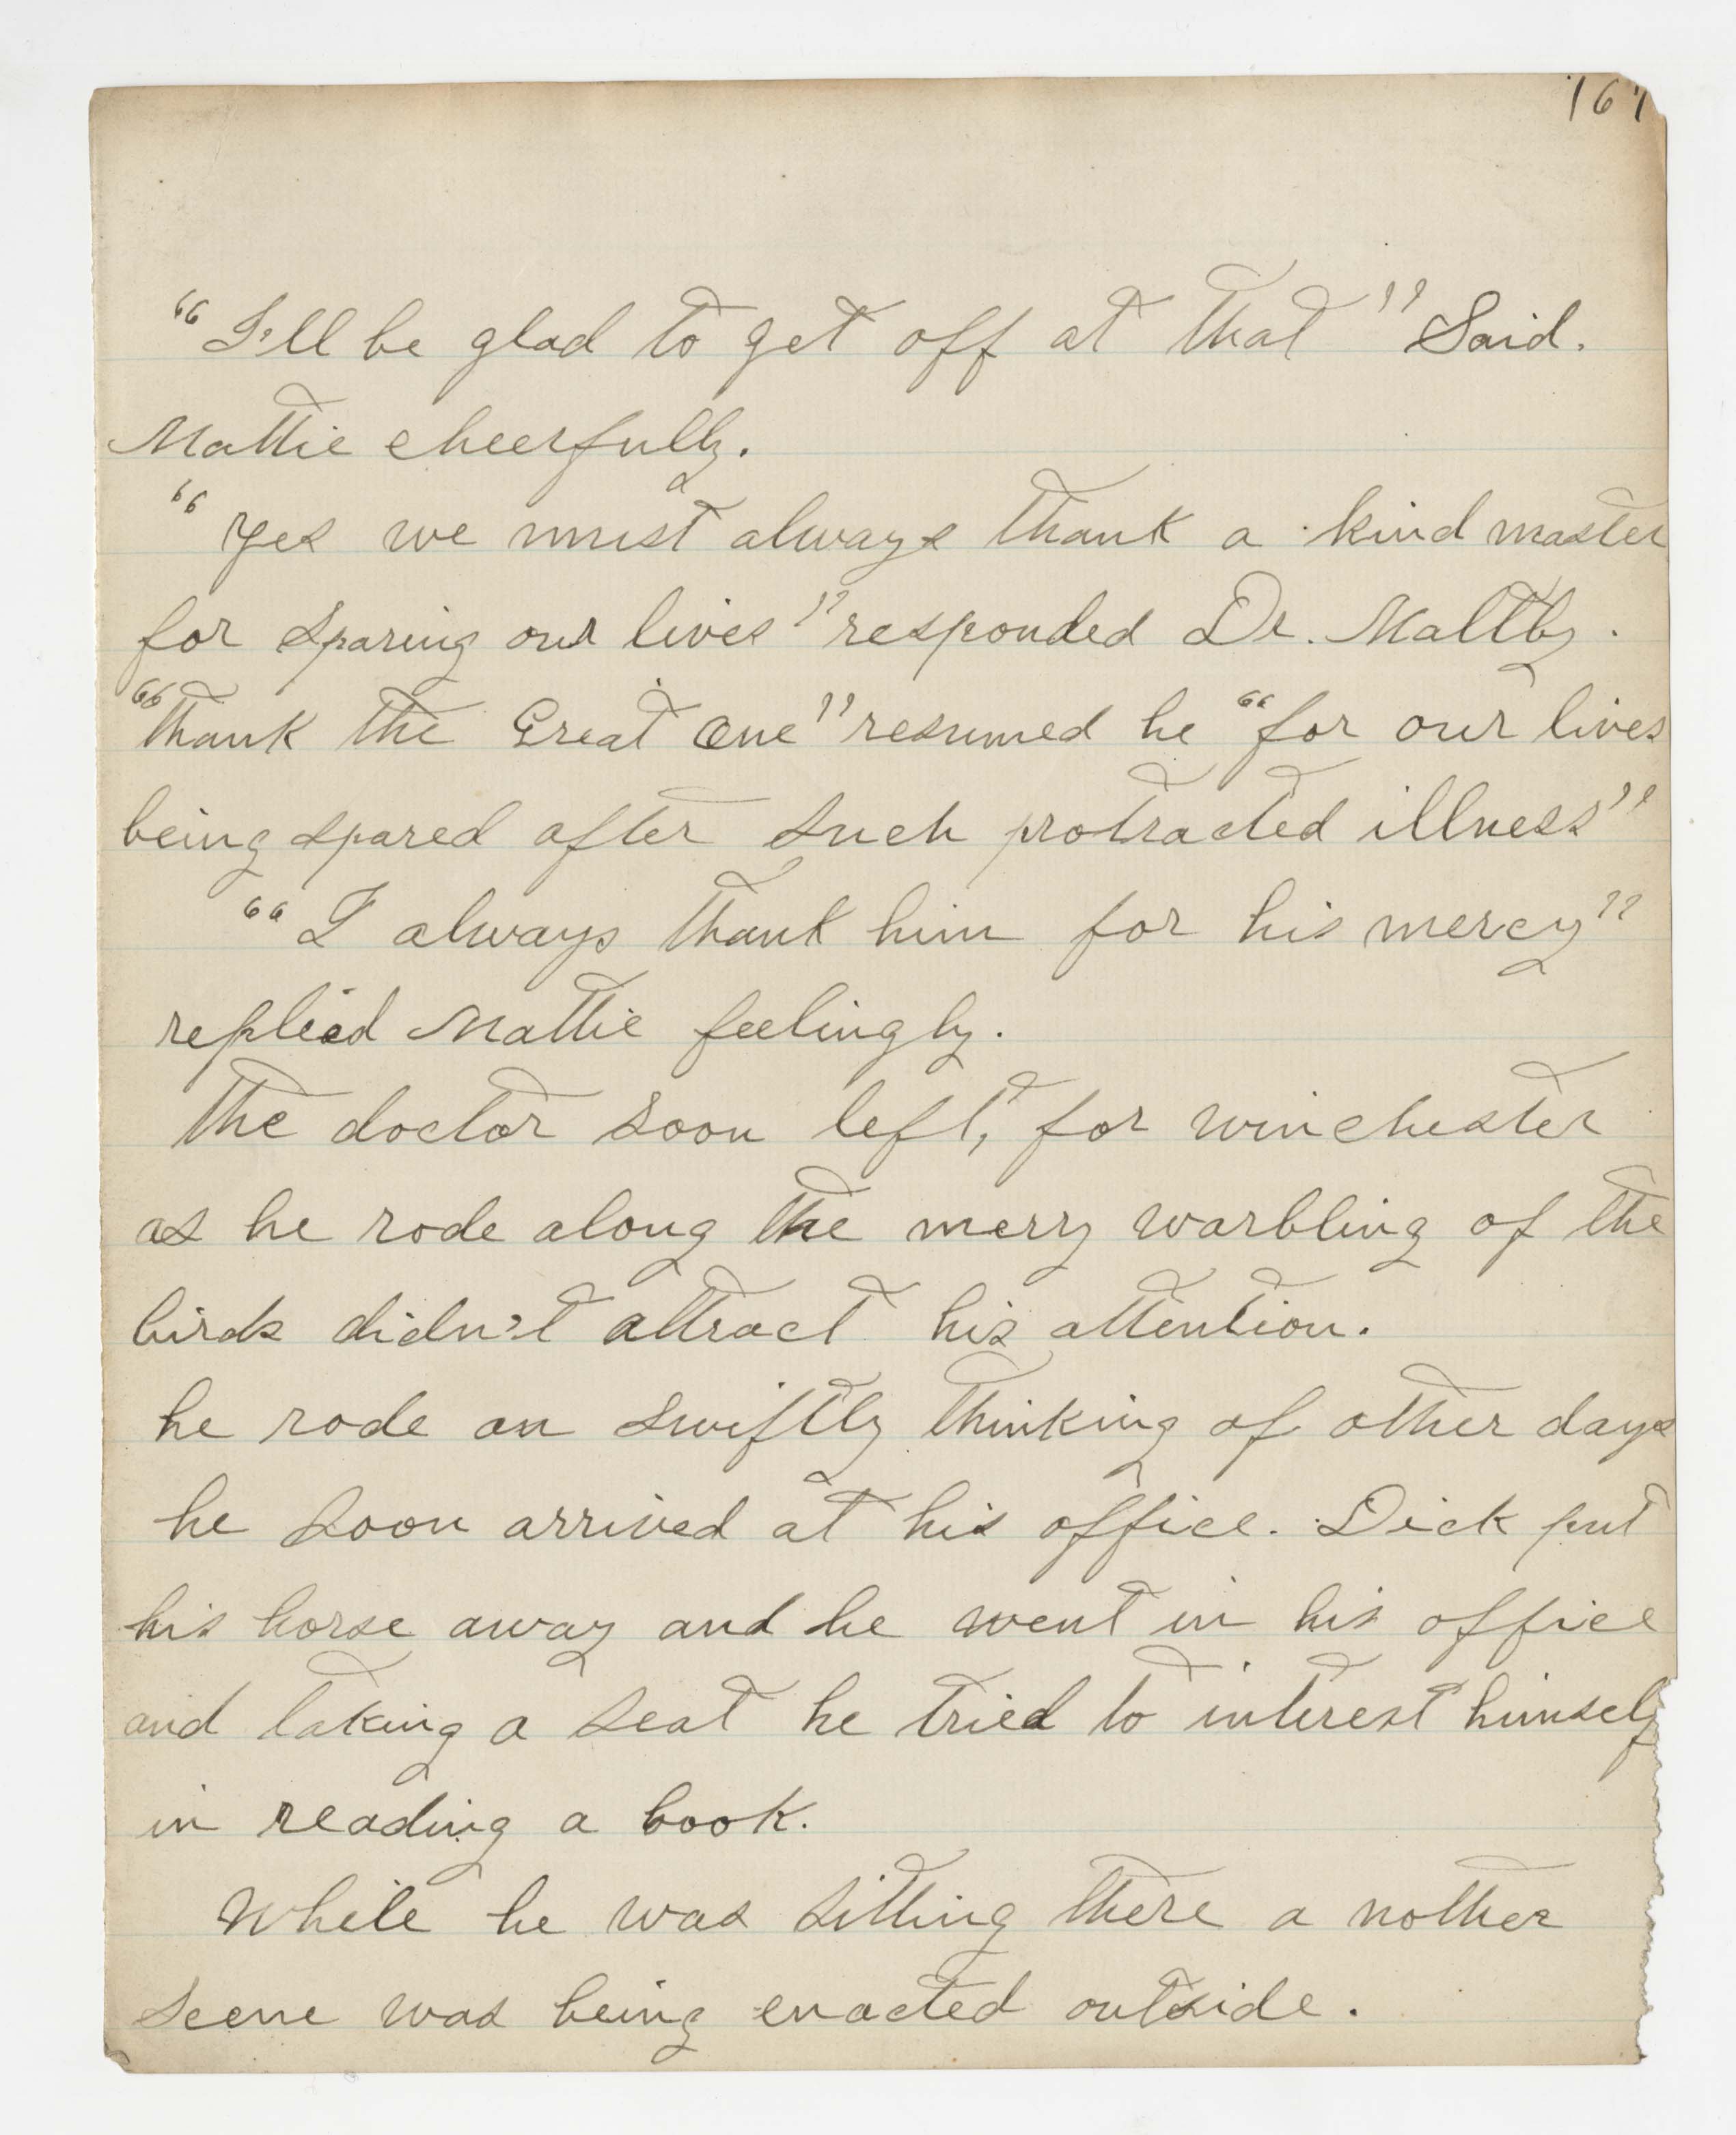 167
"I'll be glad to get off at that" Said.
Mattie cheerfully.
"yes we must always thank a kind master
for sparing our lives" responded Dr. Maltby.
"thank the Great One" resumed he "for our lives
being spared after such protracted illness"
"I always thank him for his mercy"
replied Mattie feelingly.
the doctor soon left, for winchester
as he rode along the merry warbling of the
birds didn't attract his attention.
he rode on swiftly thinking of other days
he soon arrived at his office. Dick put
his horse away and he went in his office
and taking a seat he tried to interest himself
in reading a book.
While he was sitting there a nother
scene was being enacted outside.